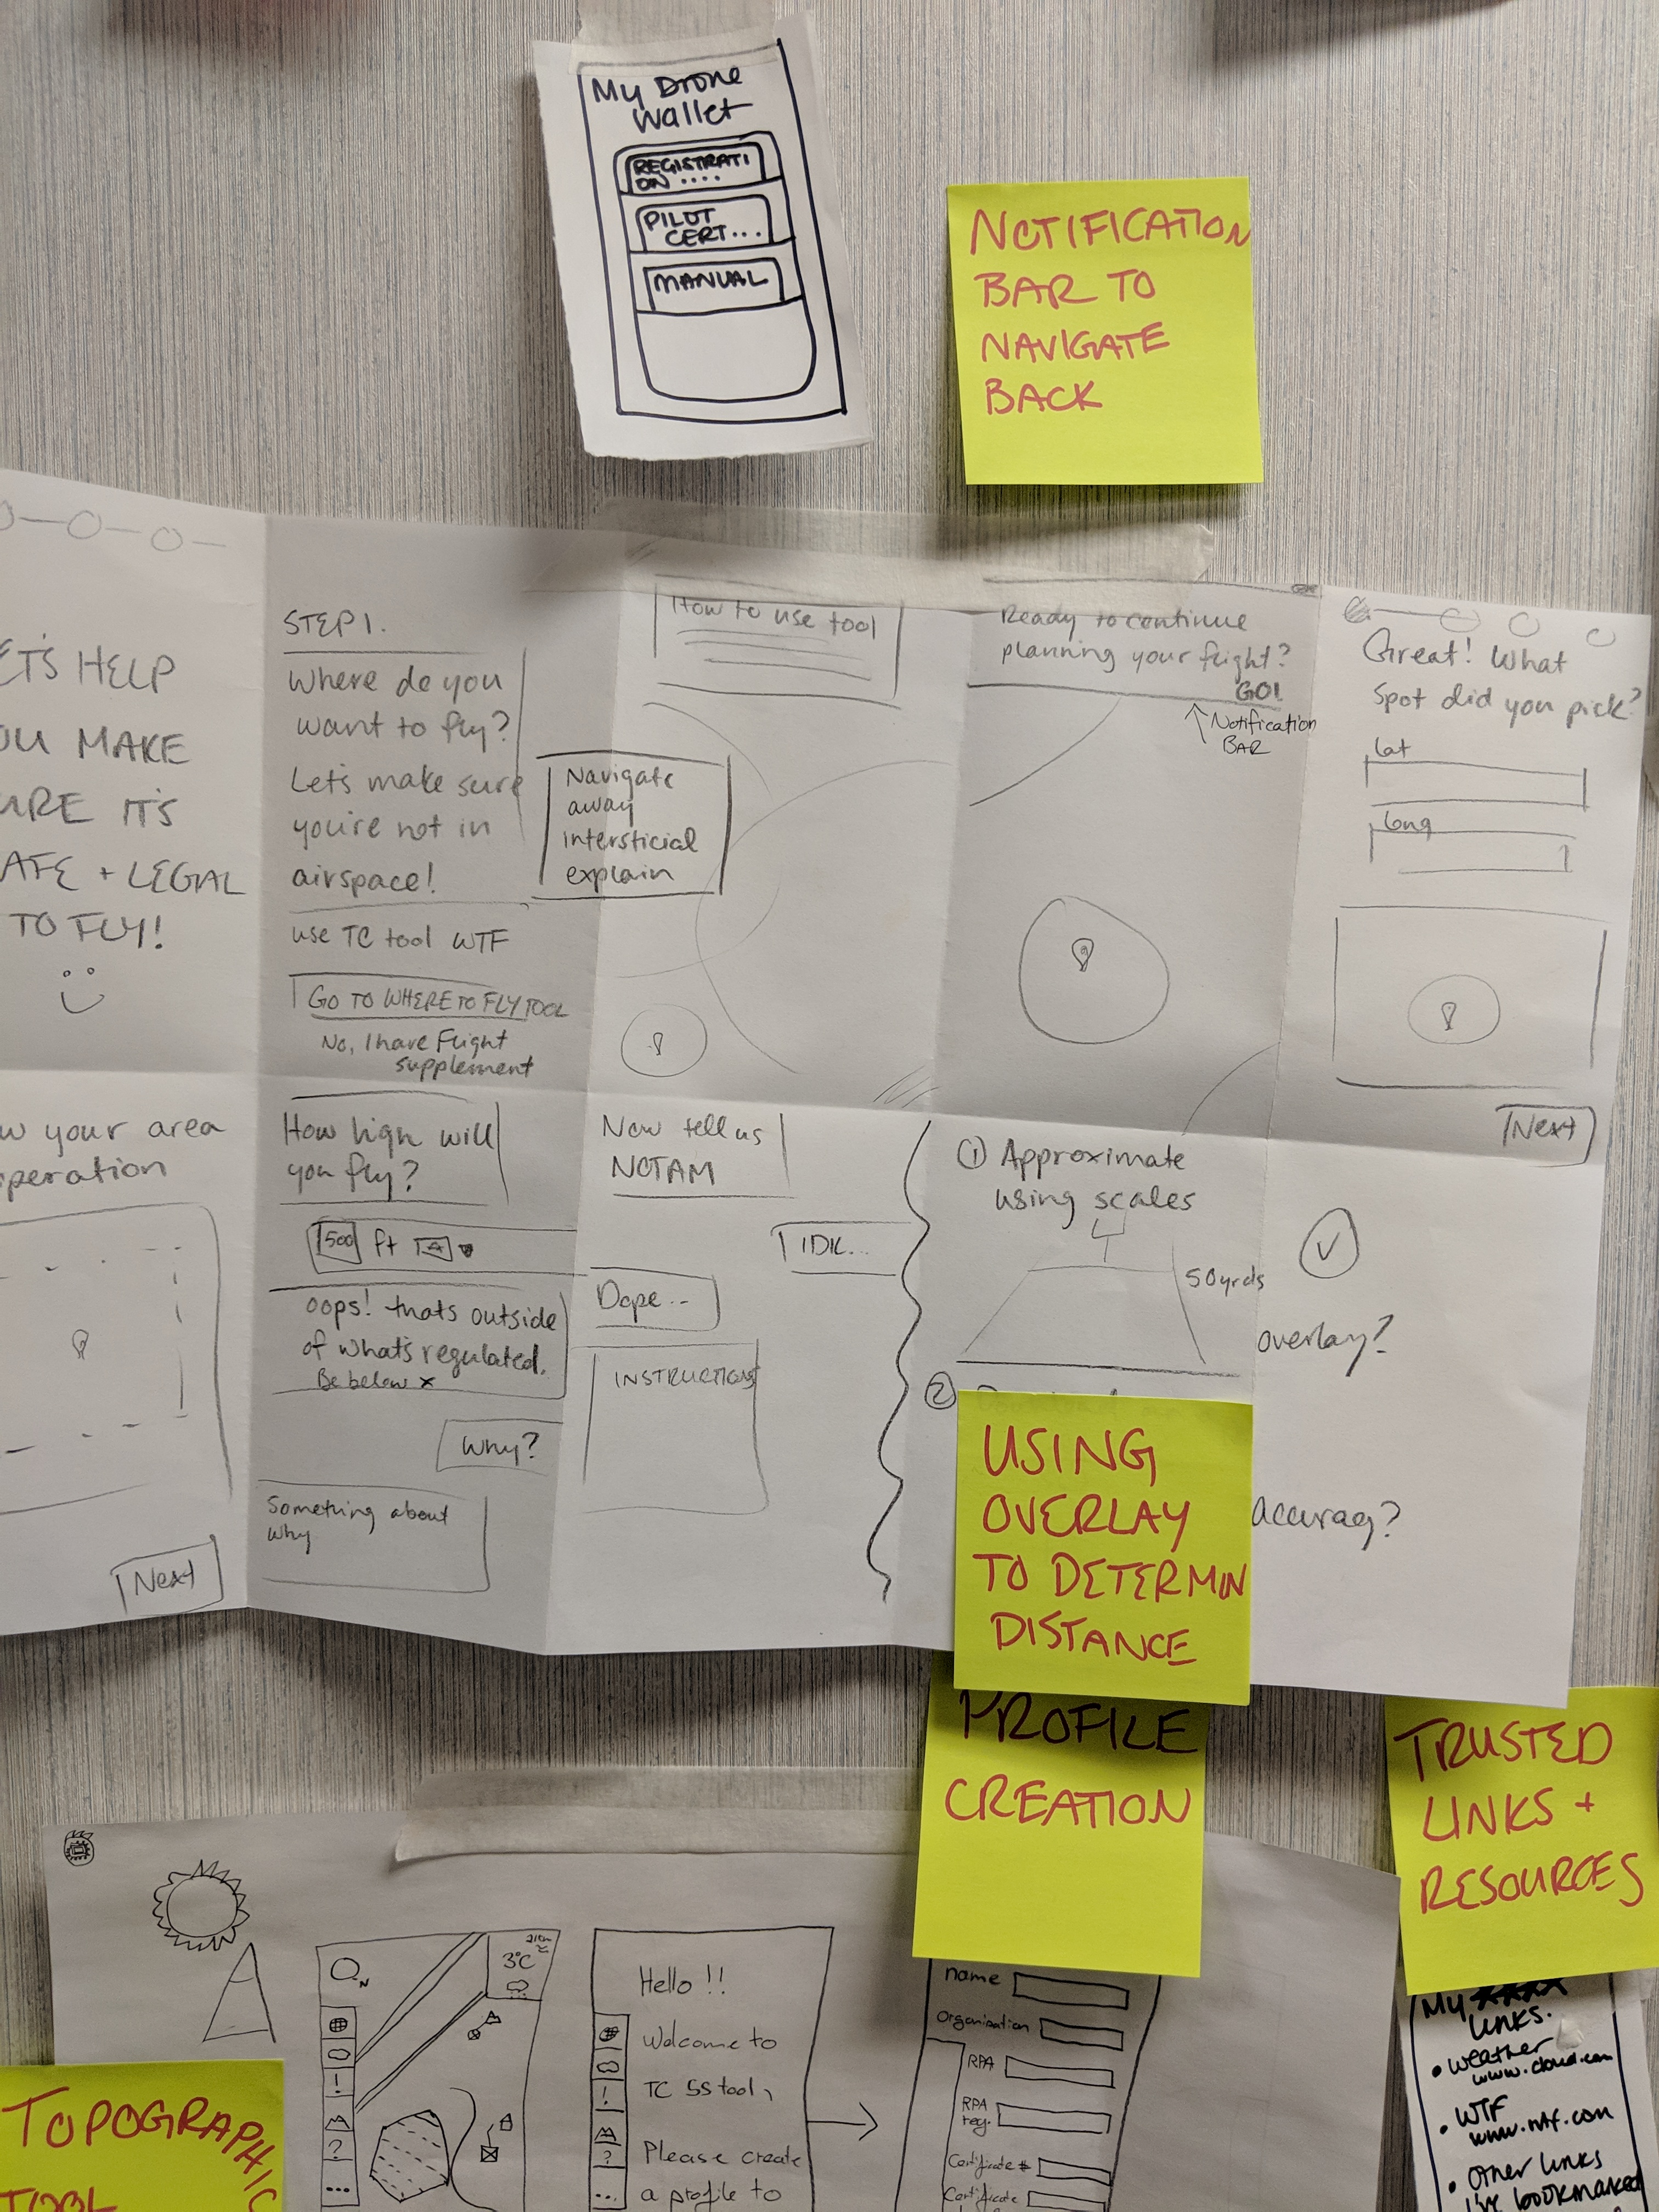 My Drone
Wallet
REGISTRATI
ON ....
PILOT
CERT...
MANUAL
NOTIFICATION
BAR TO
NAVIGATE
BACK
ETS HELP
OU MAKE
URE IT'S
AFE + LEGAL
TO FLY!
STEP 1.
Where do you
want to fly?
Let's make sure
you're not in
airspace!
use TC tool WTF
GO TO WHERE TO FLY TOOL
No, I have Flight
supplement
How to use tool
Navigate
away
intersticial
explain
Ready to continue
planning your flight?
GO!
Notification
BAR
Great! What
spot did you pick?
lat
long
Next
w your area
peration
Next
How high will
you fly?
500 ft
oops! thats outside
of what's regulated.
Be below x
Why?
Something about
why
Now tell us
NOTAM
IDK...
Dope...
INSTRUCTIONS
1 Approximate
using scales
50yrds
overlay?
2
accuracy?
USING
OVERLAY
TO DETERMIN
DISTANCE
PROFILE
CREATION
TRUSTED
LINKS +
RESOURCES
N
3°C
!
?
...
Hello!!
Welcome to
TC SS tool,
Please create
a profile to
!
?
...
name
Organisation
RPA
RPA
reg.
Certificate #
Certificate
My
links.
• weather
www.cloud.com
• WTF
www.wtf.com
• other links
I've bookmarked
TOPOGRAPHIC
TOOL